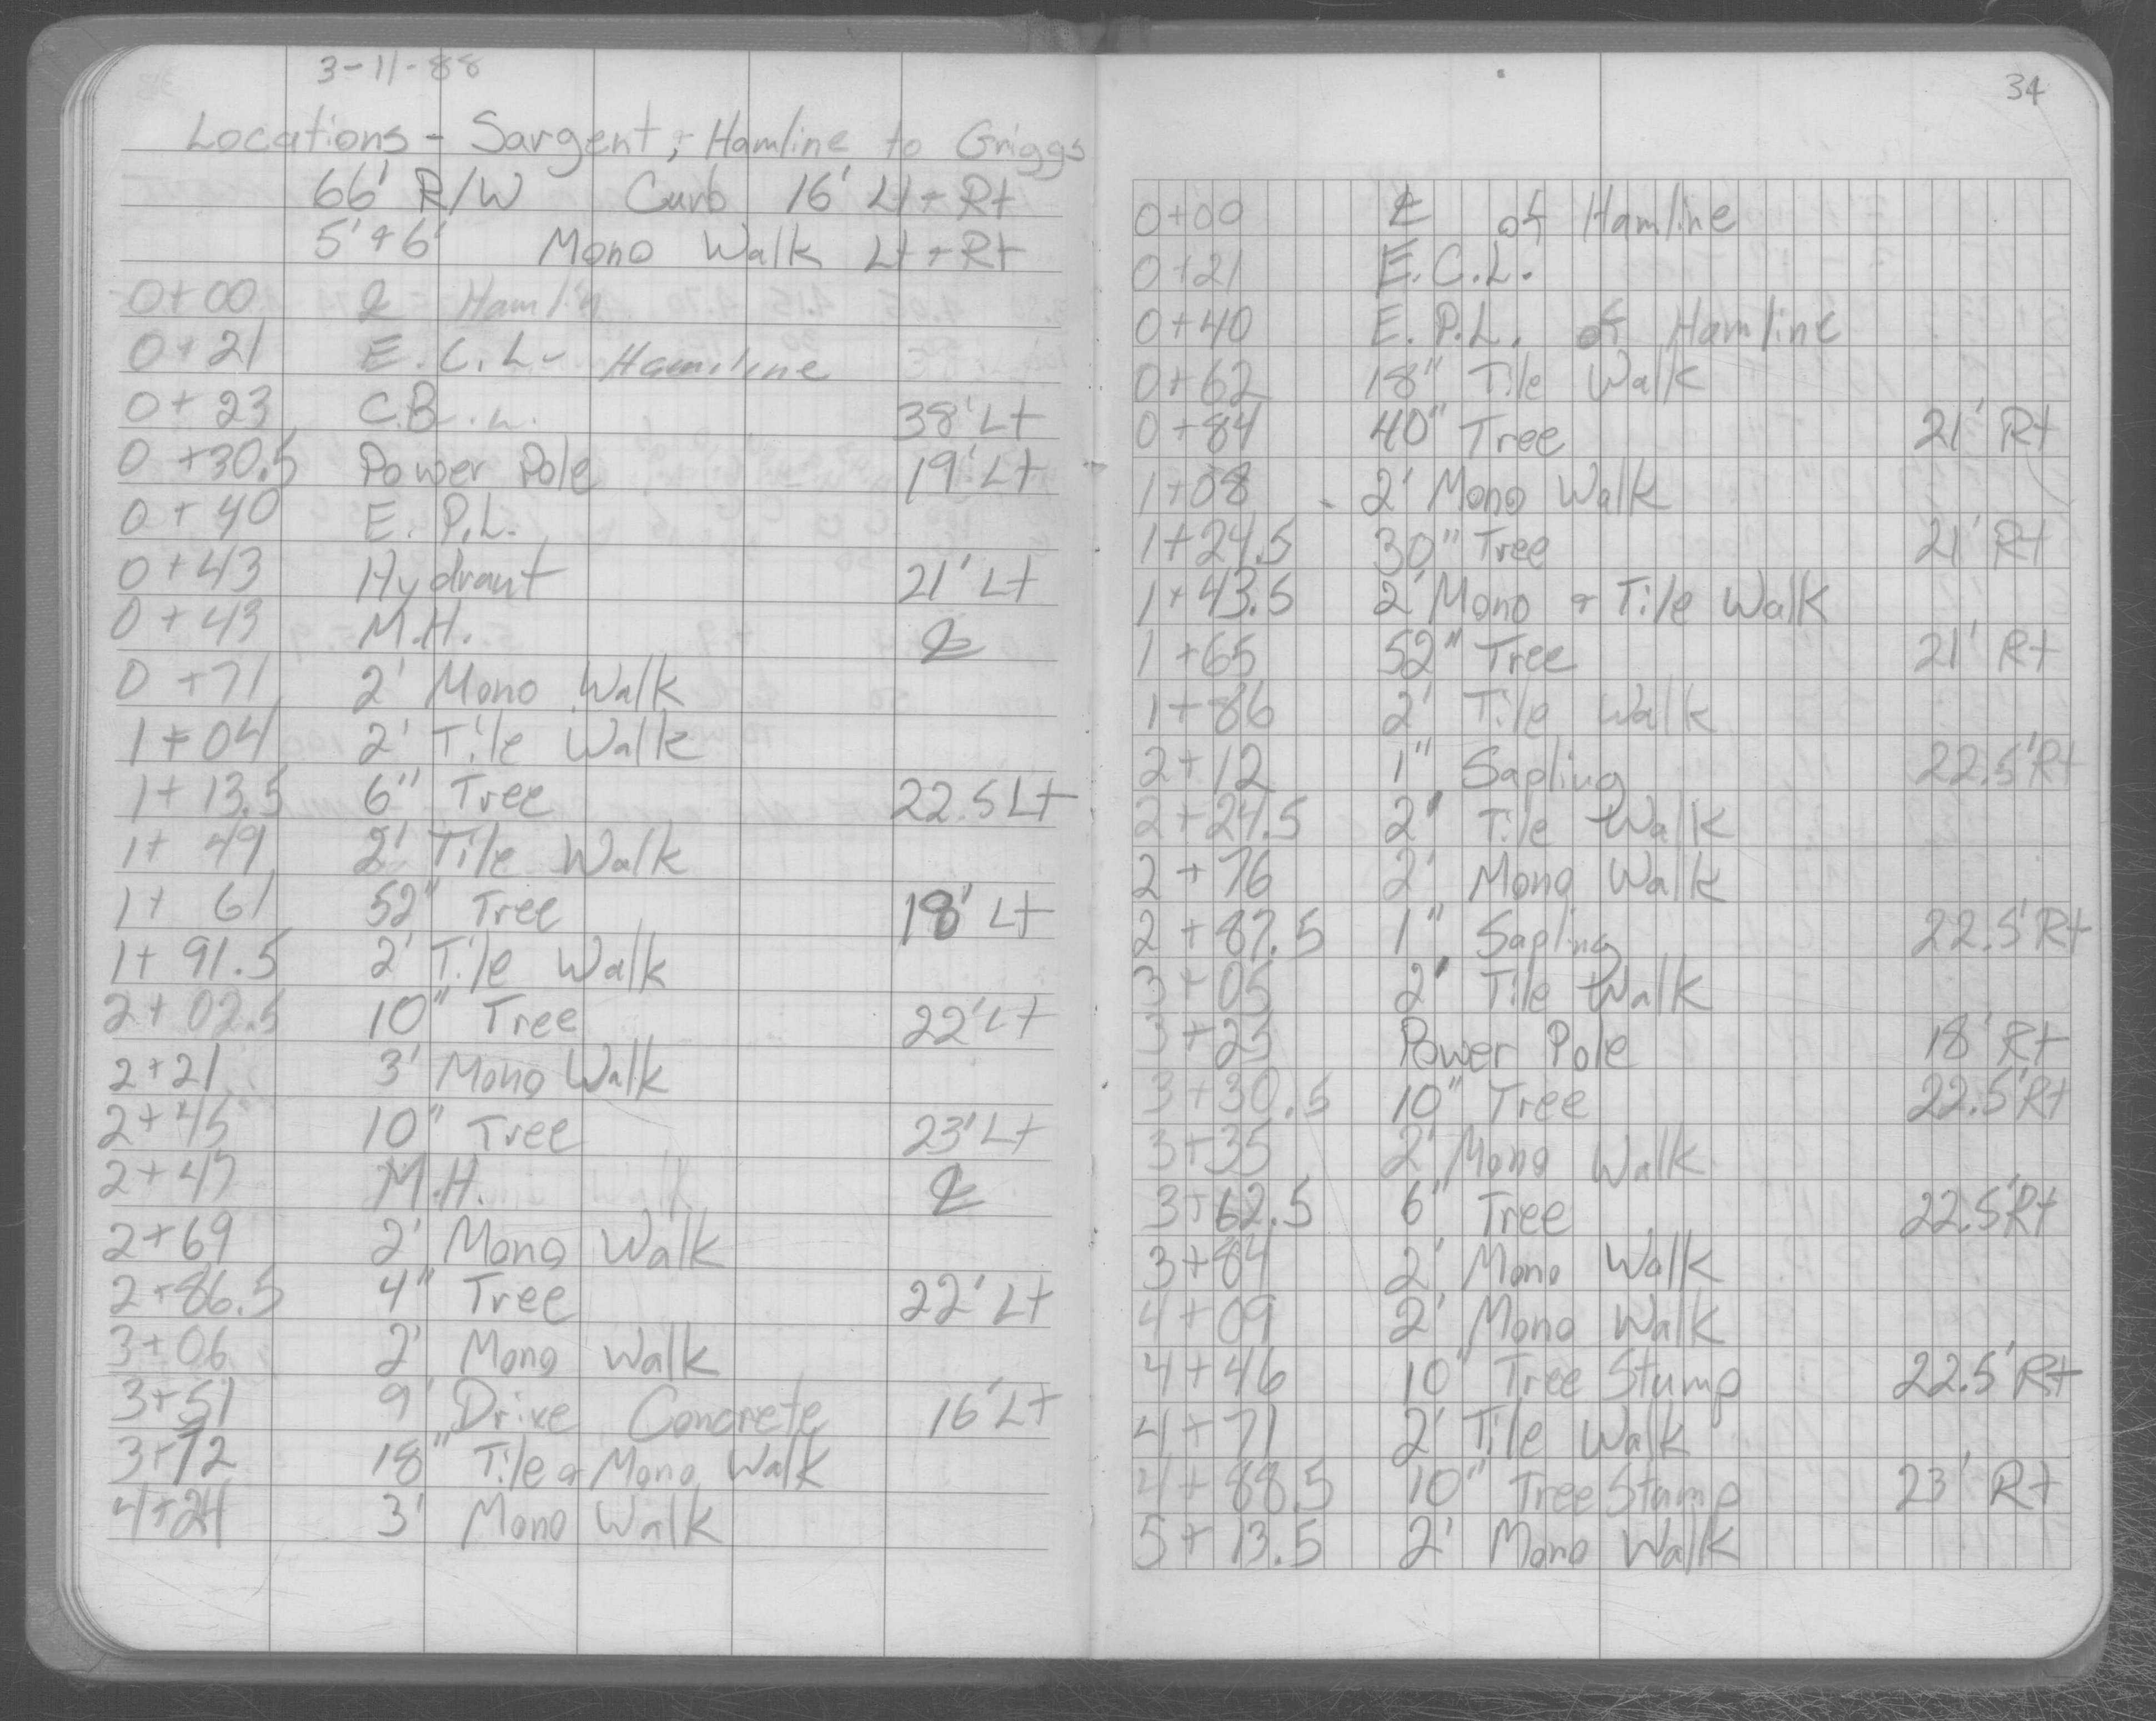 3-11-88
Locations - Sargent, Hamline to Griggs
66' R/W Curb 16' Lt + Rt
5' + 6' Mono Walk Lt + Rt
0+00 ℄ Hamlin
0+21 E.C.L. Hamline
0+23 C.B. 38' Lt
0+30.5 Power Pole 19' Lt
0+40 E.P.L.
0+43 Hydrant 21' Lt
0+43 M.H. ℄
0+71 2' Mono Walk
1+04 2' Tile Walk
1+13.5 6" Tree 22.5 Lt
1+49 2' Tile Walk
1+61 52" Tree 18' Lt
1+91.5 2' Tile Walk
2+02.5 10" Tree 22' Lt
2+21 3' Mono Walk
2+45 10" Tree 23' Lt
2+47 M.H. ℄
2+69 2' Mono Walk
2+86.5 4" Tree 22' Lt
3+06 2' Mono Walk
3+51 9' Drive Concrete 16' Lt
3+72 18" Tile + Mono Walk
4+24 3' Mono Walk
34
0+00 ℄ of Hamline
0+21 E.C.L.
0+40 E.P.L. of Hamline
0+62 18" Tile Walk
0+84 40" Tree 21' Rt
1+08 2' Mono Walk
1+24.5 30" Tree 21' Rt
1+43.5 2' Mono + Tile Walk
1+65 52" Tree 21' Rt
1+86 2' Tile Walk
2+12 1" Sapling 22.5' Rt
2+24.5 2' Tile Walk
2+76 2' Mono Walk
2+87.5 1" Sapling 22.5' Rt
3+05 2' Tile Walk
3+23 Power Pole 18' Rt
3+30.5 10" Tree 22.5' Rt
3+35 2' Mono Walk
3+62.5 6" Tree 22.5' Rt
3+84 2' Mono Walk
4+09 2' Mono Walk
4+46 10" Tree Stump 22.5' Rt
4+71 2' Tile Walk
4+88.5 10" Tree Stump 23' Rt
5+13.5 2' Mono Walk